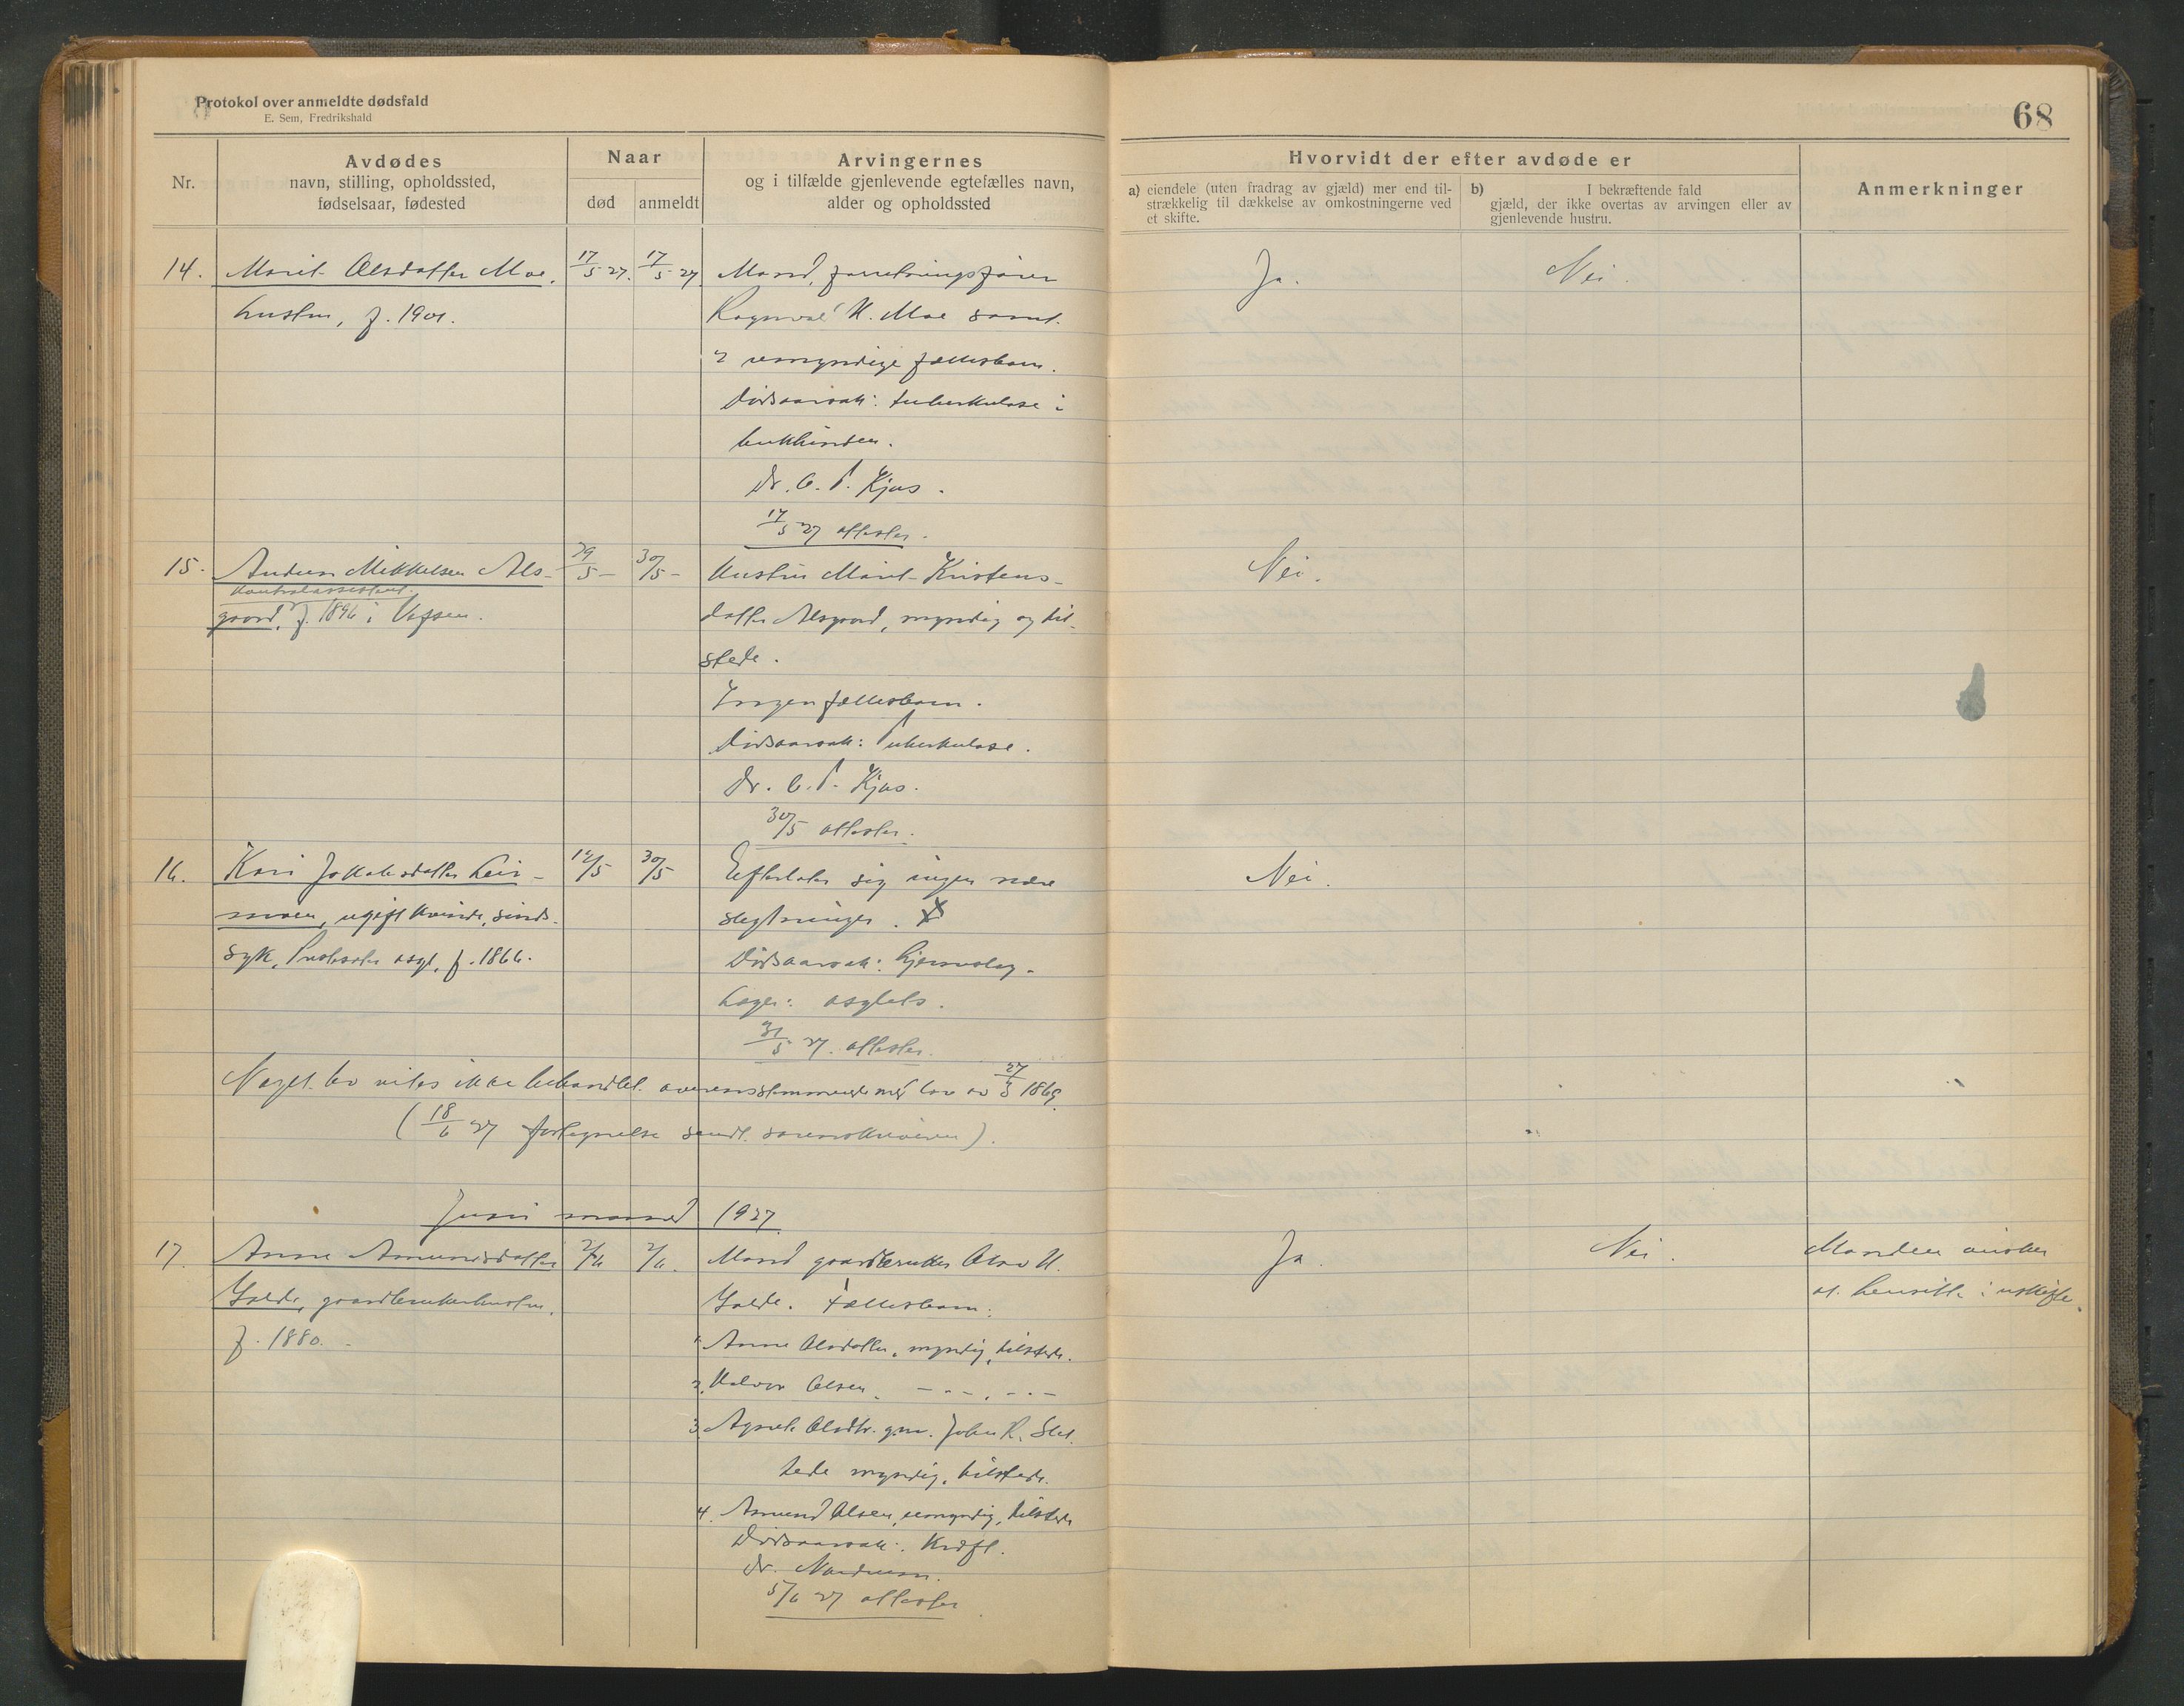 Protokol over anmeldte dødsfald
E. Sem, Fredrikshald
68
Nr.
Avdødes
navn, stilling, opholdssted,
fødselsaar, fødested
Naar
død
anmeldt
Arvingernes
og i tilfælde gjenlevende egtefælles navn,
alder og opholdssted
Hvorvidt der efter avdøde er
a) eiendele (uten fradrag av gjæld) mer end til-
strækkelig til dækkelse av omkostningerne ved
et skifte.
b) I bekræftende fald
gjæld, der ikke overtas av arvingen eller av
gjenlevende hustru.
Anmerkninger
14. Marit Olsdatter Moe, 17/5 27. 17/5 27. Mand, forretningsfører Ja. Nei.
hustru, f. 1901. Ragnvald H. Moe samt
2 umyndige fællesbarn.
Dødsaarsak: tuberkulose i
bukhinden.
Dr. C. T. Kjøs.
17/5 27 attester.
15. Anders Mikkelsen Als- 29/5 - 30/5 - Hustru Marit Kristens- Nei.
Kontrolassistent
gaard, f. 1896 i Vefsen. datter Alsgaard, myndig og til-
stede.
Ingen fællesbarn.
Dødsaarsak: Tuberkulose.
Dr. C. T. Kjøs.
30/5 attester.
16. Kari Jakobsdatter Leir- 12/5 30/5 Efterlater sig ingen nære Nei.
moen, ugift kvinde, sinds- slegtninger. X
syk, asyl, f. 1866. Dødsaarsak: Hjerneslag.
Læge: asylets.
31/5 27. attester.
Noget bo vites ikke behandlet overensstemmende med lov av 27/3 1869.
(18/6 27 fortegnelse sendt sorenskriveren).
Juni maaned 1927.
17. Anne Amundsdatter 2/6 2/6. Mand gaardbruker Olav H. Ja. Nei. Manden ønsker
gaardbrukerhustru, Fællesbarn: at hensitte i uskifte.
f. 1880.
1. Anne Olsdatter, myndig, tilstede.
2. Halvor Olsen, - - -, - - -
3. Agnete Olsdtr. gm. John R. Slet-
tede myndig, tilstede.
4. Amund Olsen, umyndig, tilstede
Dødsaarsak: Kræft.
Dr. Nordrum.
5/6 27 attester